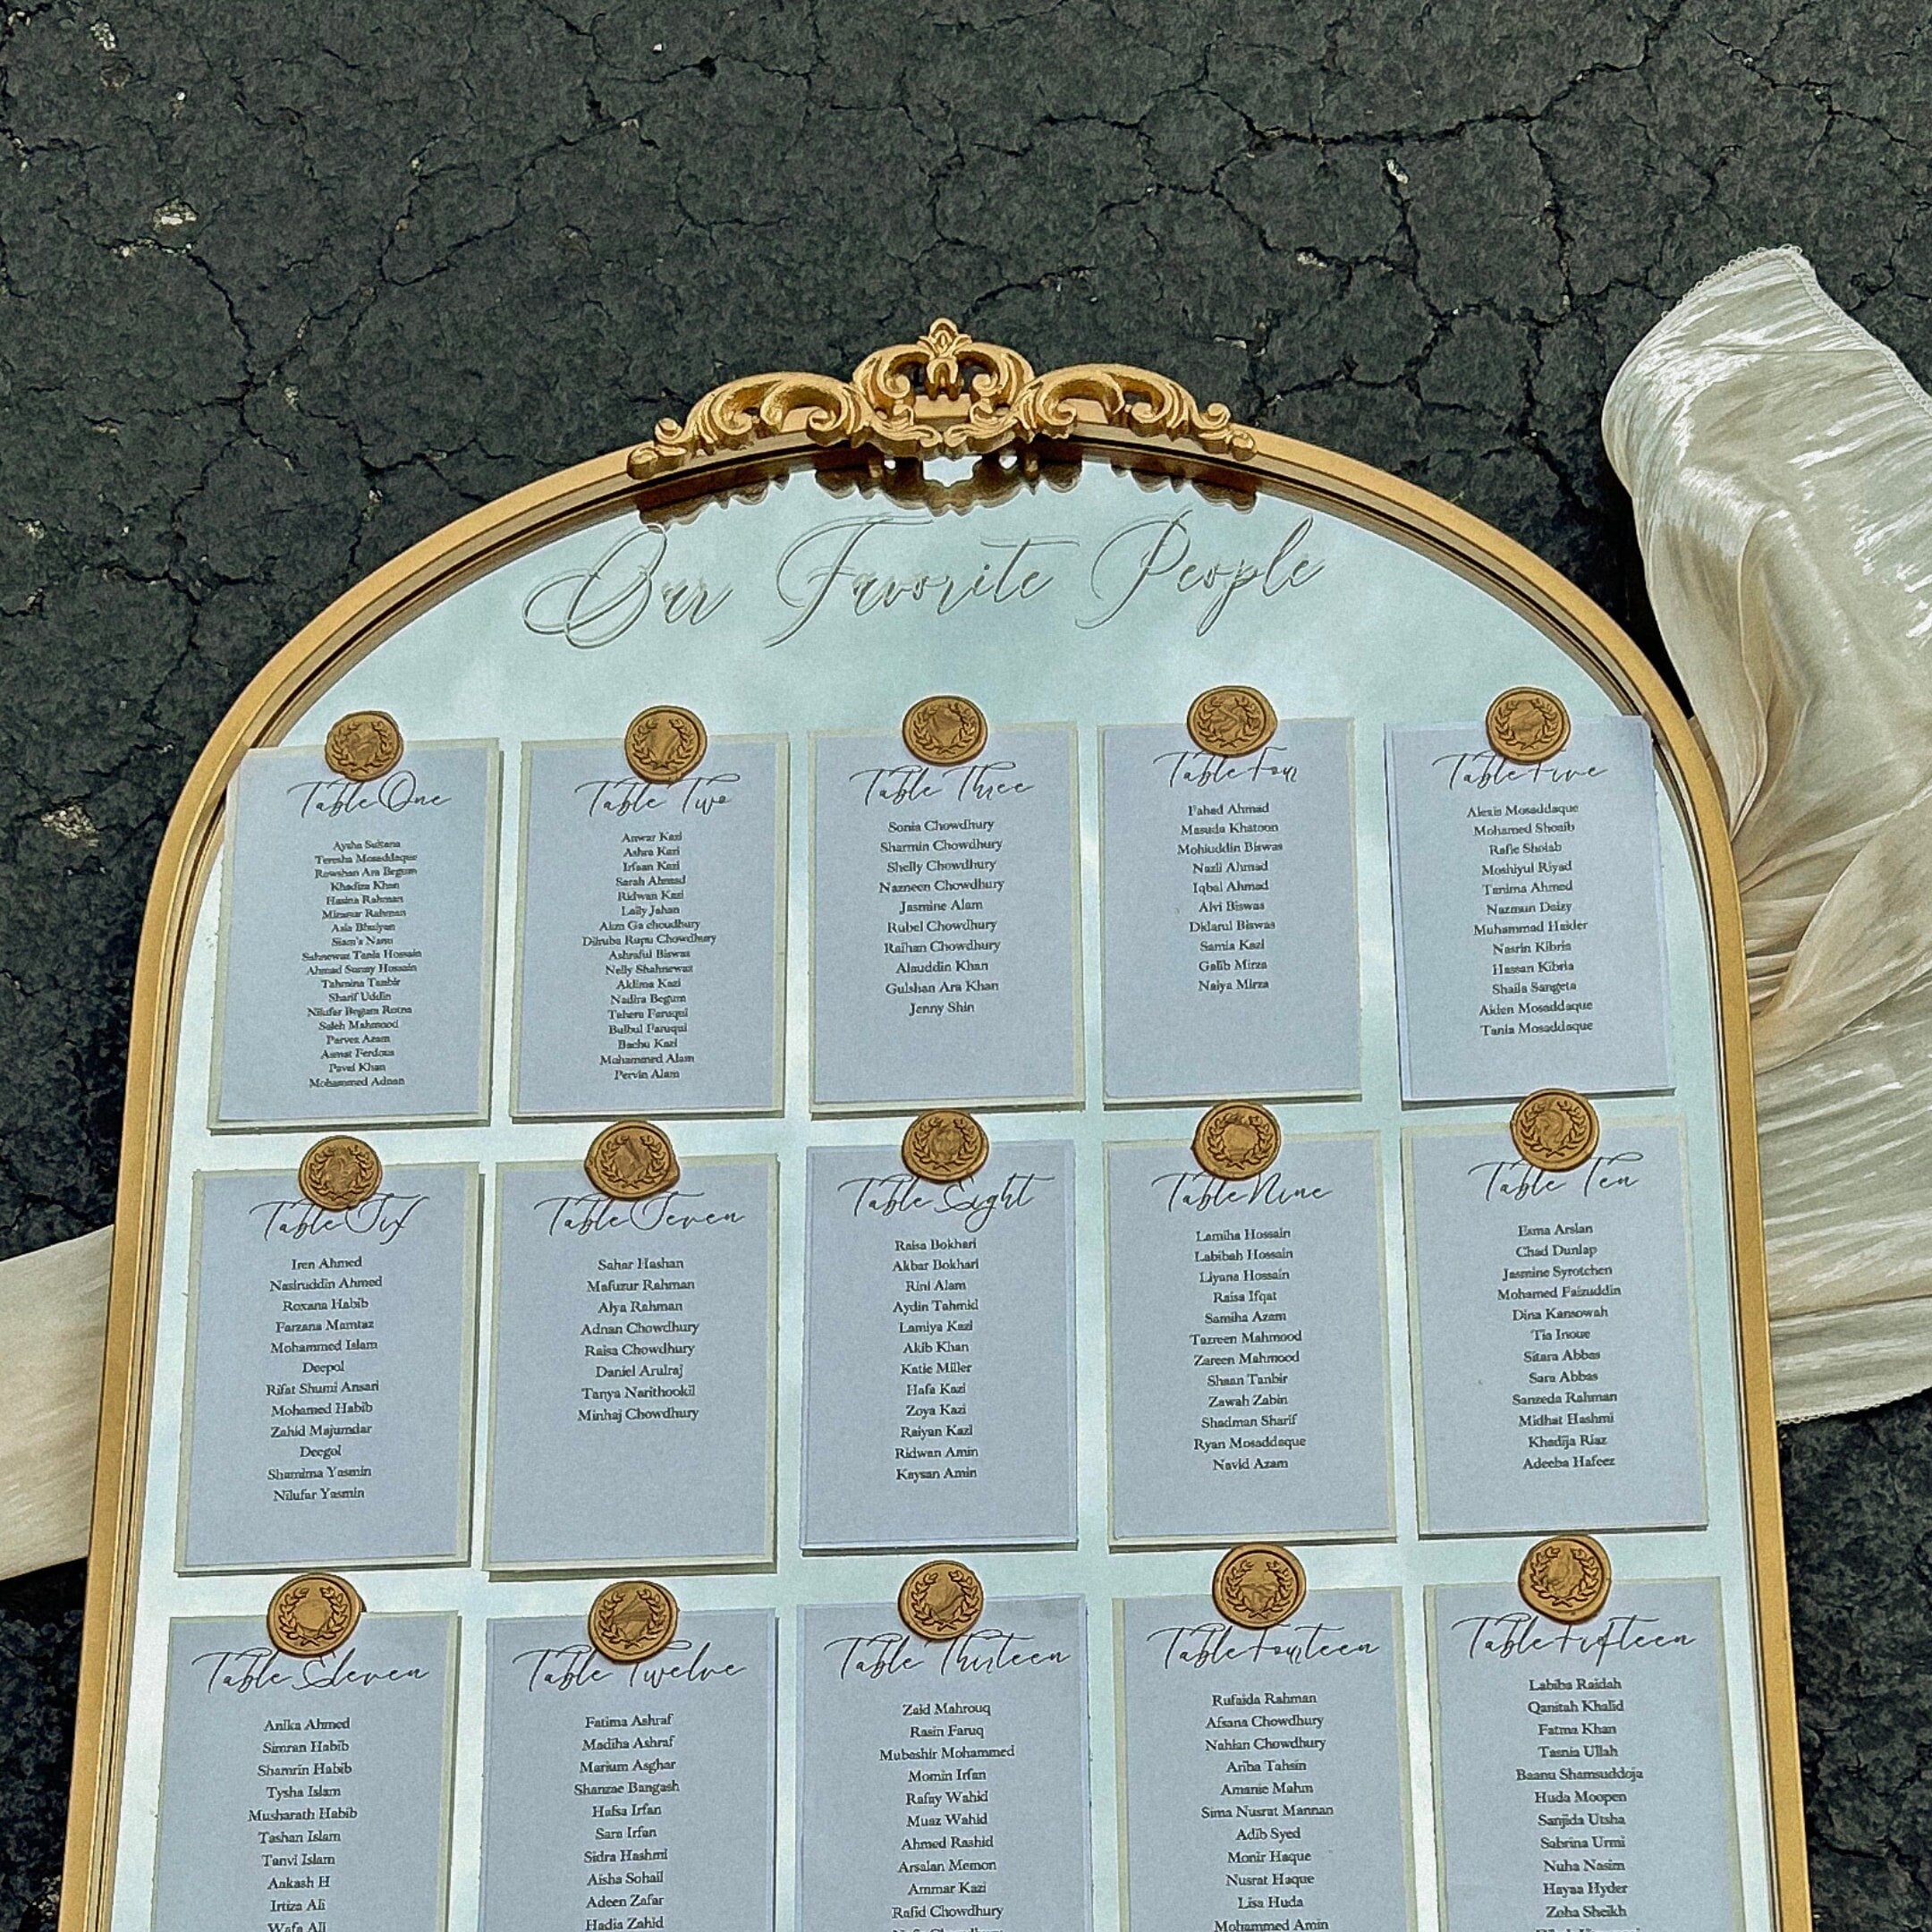 Our Favorite People
Table One
Aysha Sultana
Teresha Mosaddaque
Rowshan Ara Begum
Khadiza Khan
Hasina Rahman
Mizanur Rahman
Asia Bhuiyan
Siam's Nanu
Sahnewaz Tania Hossain
Ahmad Sunny Hossain
Tahmina Tanbir
Sharif Uddin
Nilufar Begum Rotna
Saleh Mahmood
Parvez Azam
Asmat Ferdous
Pavel Khan
Mohammed Adnan
Table Two
Anwar Kazi
Ashra Kazi
Irfaan Kazi
Sarah Ahmad
Ridwan Kazi
Laily Jahan
Akm Ga choudhury
Dilruba Rupu Chowdhury
Ashraful Biswas
Nelly Shahnewaz
Aklima Kazi
Nadira Begum
Tahera Faruqui
Bulbul Faruqui
Bachu Kazi
Mohammed Alam
Pervin Alam
Table Three
Sonia Chowdhury
Sharmin Chowdhury
Shelly Chowdhury
Nazneen Chowdhury
Jasmine Alam
Rubel Chowdhury
Raihan Chowdhury
Alauddin Khan
Gulshan Ara Khan
Jenny Shin
Table Four
Fahad Ahmad
Masuda Khatoon
Mohiuddin Biswas
Nazli Ahmad
Iqbal Ahmad
Alvi Biswas
Didarul Biswas
Samia Kazi
Galib Mirza
Naiya Mirza
Table Five
Alexis Mosaddaque
Mohamed Shoaib
Rafie Shoiab
Moshiyul Riyad
Tanima Ahmed
Nazmun Daizy
Muhammad Haider
Nasrin Kibria
Hassan Kibria
Shaila Sangeta
Aiden Mosaddaque
Tania Mosaddaque
Table Six
Iren Ahmed
Nasiruddin Ahmed
Roxana Habib
Farzana Mamtaz
Mohammed Islam
Deepol
Rifat Shumi Ansari
Mohamed Habib
Zahid Majumdar
Deegol
Shamima Yasmin
Nilufar Yasmin
Table Seven
Sahar Hashan
Mafuzur Rahman
Alya Rahman
Adnan Chowdhury
Raisa Chowdhury
Daniel Arulraj
Tanya Narithookil
Minhaj Chowdhury
Table Eight
Raisa Bokhari
Akbar Bokhari
Rini Alam
Aydin Tahmid
Lamiya Kazi
Akib Khan
Katie Miller
Hafa Kazi
Zoya Kazi
Raiyan Kazi
Ridwan Amin
Kaysan Amin
Table Nine
Lamiha Hossain
Labibah Hossain
Liyana Hossain
Raisa Ifqat
Samiha Azam
Tazreen Mahmood
Zareen Mahmood
Shaan Tanbir
Zawah Zabin
Shadman Sharif
Ryan Mosaddaque
Navid Azam
Table Ten
Esma Arslan
Chad Dunlap
Jasmine Syrotchen
Mohamed Faizuddin
Dina Kansowah
Tia Inoue
Sitara Abbas
Sara Abbas
Sanzeda Rahman
Midhat Hashmi
Khadija Riaz
Adeeba Hafeez
Table Eleven
Anika Ahmed
Simran Habib
Shamrin Habib
Tysha Islam
Musharath Habib
Tashan Islam
Tanvi Islam
Aakash H
Irtiza Ali
Wafa Ali
Table Twelve
Fatima Ashraf
Madiha Ashraf
Marium Asghar
Shanzae Bangash
Hafsa Irfan
Sara Irfan
Sidra Hashmi
Aisha Sohail
Adeen Zafar
Hadia Zahid
Table Thirteen
Zaid Mahrouq
Rasin Faruq
Mubashir Mohammed
Momin Irfan
Rafay Wahid
Muaz Wahid
Ahmed Rashid
Arsalan Memon
Ammar Kazi
Rafid Chowdhury
Table Fourteen
Rufaida Rahman
Afsana Chowdhury
Nahian Chowdhury
Ariba Tahsin
Amanie Mahm
Sima Nusrat Mannan
Adib Syed
Monir Haque
Nusrat Haque
Lisa Huda
Mohammed Amin
Table Fifteen
Labiba Raidah
Qanitah Khalid
Fatma Khan
Tasnia Ullah
Baanu Shamsuddoja
Huda Moopen
Sanjida Utsha
Sabrina Urmi
Nuha Nasim
Hayaa Hyder
Zoha Sheikh